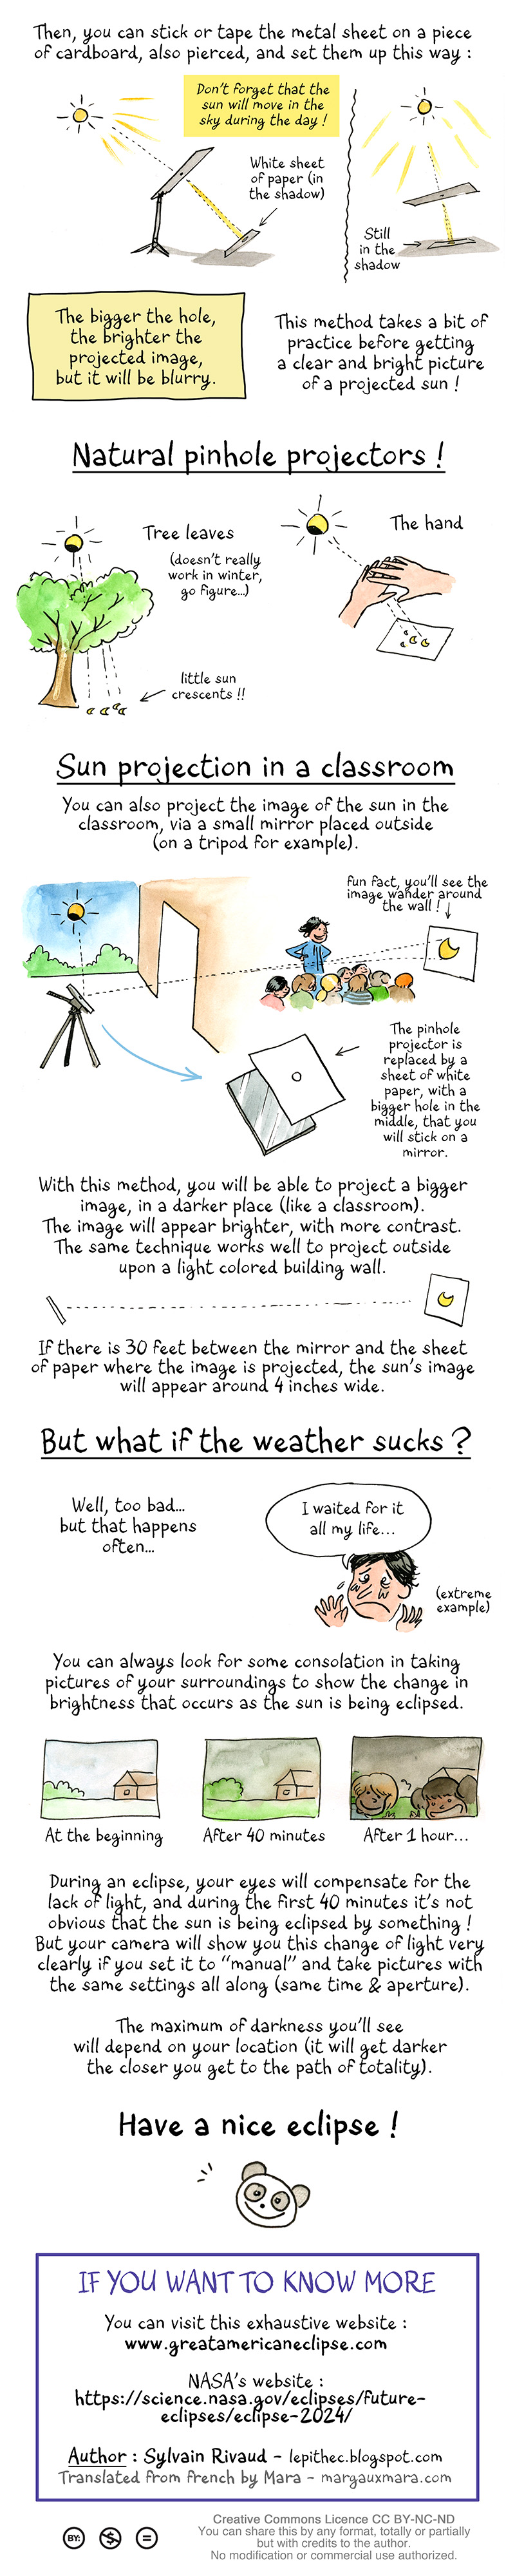 Then, you can stick or tape the metal sheet on a piece
of cardboard, also pierced, and set them up this way :
Don't forget that the
sun will move in the
sky during the day !
White sheet
of paper (in
the shadow)
Still
in the
shadow
The bigger the hole,
the brighter the
projected image,
but it will be blurry.
This method takes a bit of
practice before getting
a clear and bright picture
of a projected sun !
Natural pinhole projectors !
Tree leaves
(doesn't really
work in winter,
go figure...)
little sun
crescents !!
The hand
Sun projection in a classroom
You can also project the image of the sun in the
classroom, via a small mirror placed outside
(on a tripod for example).
Fun fact, you'll see the
image wander around
the wall !
The pinhole
projector is
replaced by a
sheet of white
paper, with a
bigger hole in the
middle, that you
will stick on a
mirror.
With this method, you will be able to project a bigger
image, in a darker place (like a classroom).
The image will appear brighter, with more contrast.
The same technique works well to project outside
upon a light colored building wall.
If there is 30 feet between the mirror and the sheet
of paper where the image is projected, the sun's image
will appear around 4 inches wide.
But what if the weather sucks ?
Well, too bad...
but that happens
often...
I waited for it
all my life...
(extreme
example)
You can always look for some consolation in taking
pictures of your surroundings to show the change in
brightness that occurs as the sun is being eclipsed.
At the beginning
After 40 minutes
After 1 hour...
During an eclipse, your eyes will compensate for the
lack of light, and during the first 40 minutes it's not
obvious that the sun is being eclipsed by something !
But your camera will show you this change of light very
clearly if you set it to "manual" and take pictures with
the same settings all along (same time & aperture).
The maximum of darkness you'll see
will depend on your location (it will get darker
the closer you get to the path of totality).
Have a nice eclipse !
IF YOU WANT TO KNOW MORE
You can visit this exhaustive website :
www.greatamericaneclipse.com
NASA's website :
https://science.nasa.gov/eclipses/future-
eclipses/eclipse-2024/
Author : Sylvain Rivaud - lepithec.blogspot.com
Translated from French by Mara - margauxmara.com
BY:
$
=
Creative Commons Licence CC BY-NC-ND
You can share this by any format, totally or partially
but with credits to the author.
No modification or commercial use authorized.